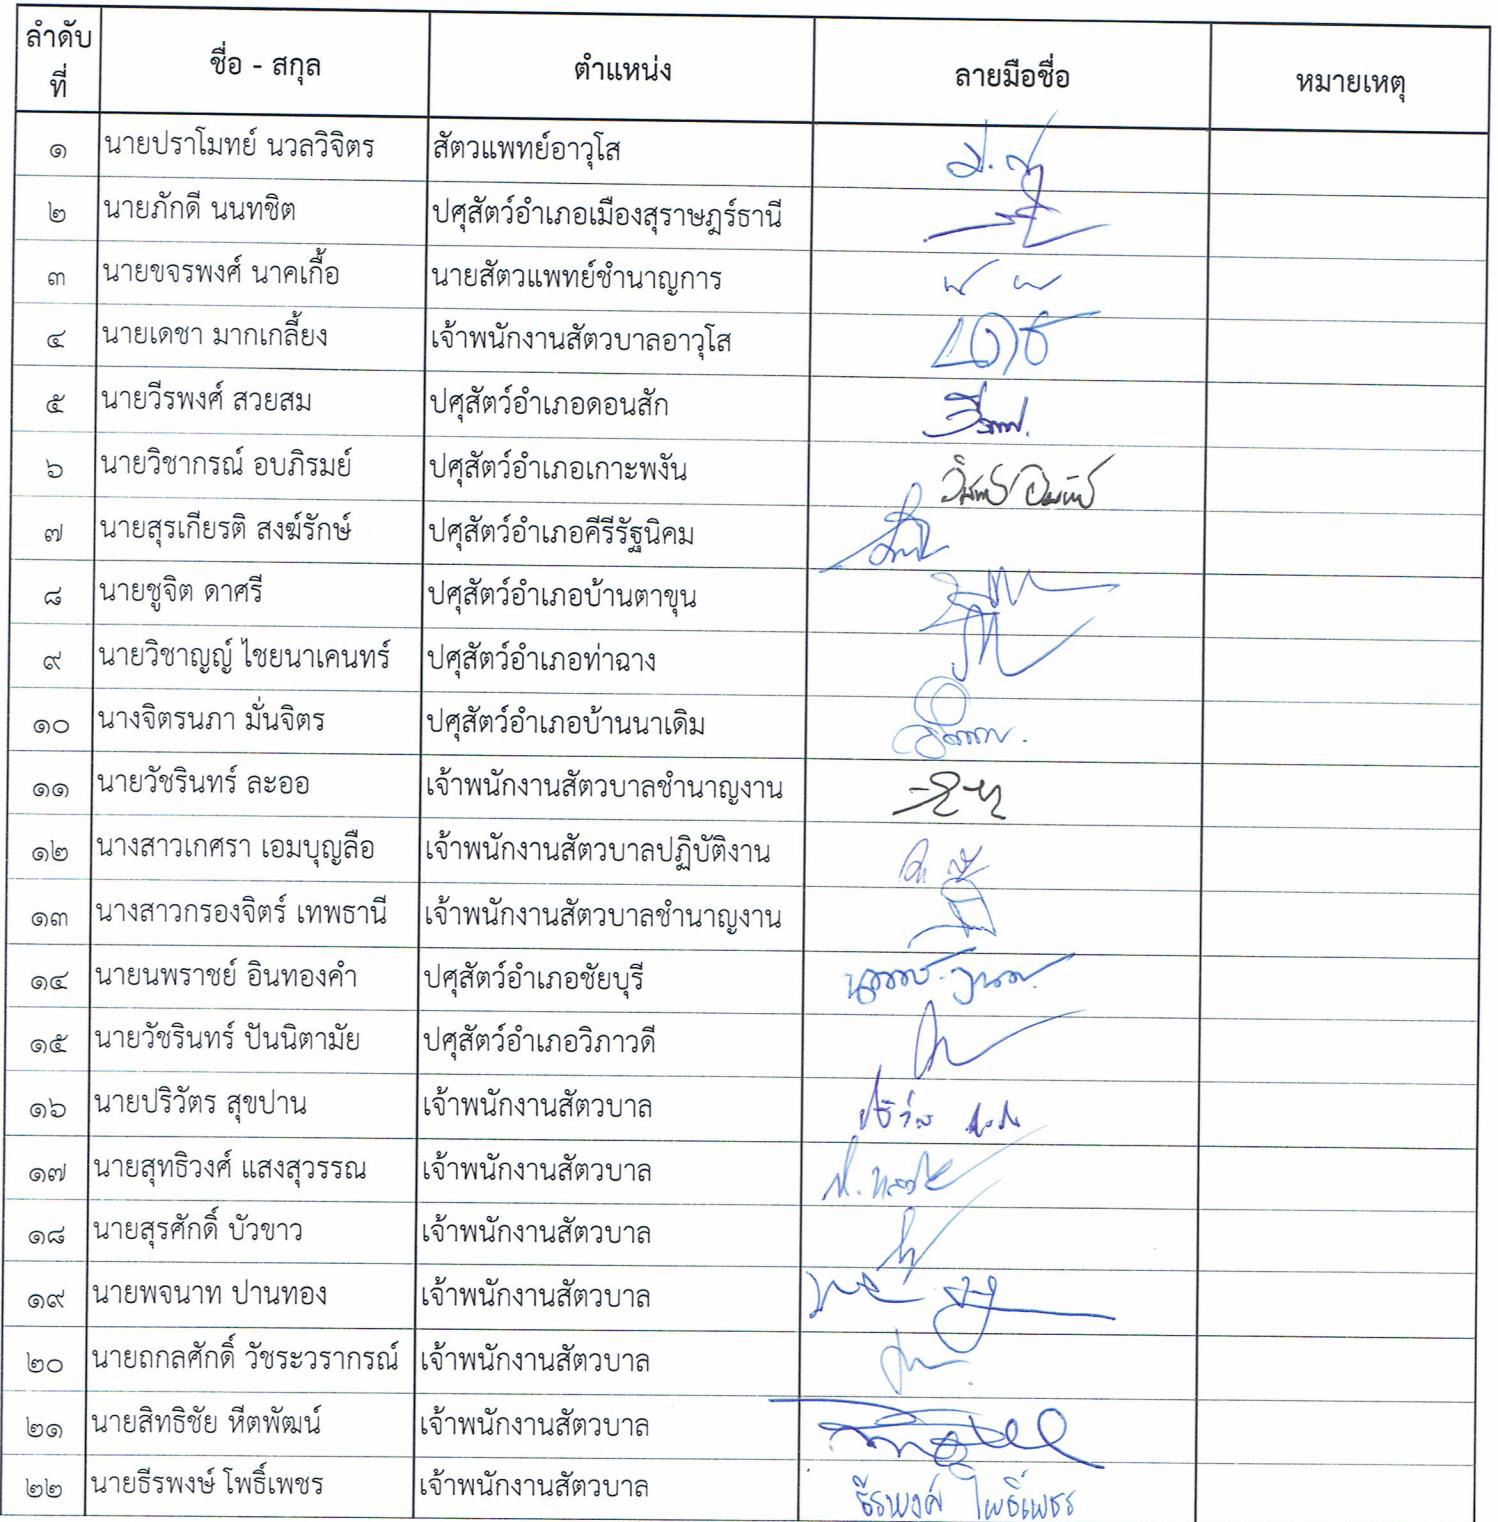 ลำดับที่ ชื่อ - สกุล ตำแหน่ง ลายมือชื่อ หมายเหตุ
๑ นายปราโมทย์ นวลวิจิตร สัตวแพทย์อาวุโส
๒ นายภักดี นนทชิต ปศุสัตว์อำเภอเมืองสุราษฎร์ธานี
๓ นายขจรพงศ์ นาคเกื้อ นายสัตวแพทย์ชำนาญการ
๔ นายเดชา มากเกลี้ยง เจ้าพนักงานสัตวบาลอาวุโส
๕ นายวีรพงศ์ สวยสม ปศุสัตว์อำเภอดอนสัก
๖ นายวิชากรณ์ อบภิรมย์ ปศุสัตว์อำเภอเกาะพงัน
๗ นายสุรเกียรติ สงฆ์รักษ์ ปศุสัตว์อำเภอคีรีรัฐนิคม
๘ นายชูจิต ดาศรี ปศุสัตว์อำเภอบ้านตาขุน
๙ นายวิชาญญ์ ไชยนาเคนทร์ ปศุสัตว์อำเภอท่าฉาง
๑๐ นางจิตรนภา มั่นจิตร ปศุสัตว์อำเภอบ้านนาเดิม
๑๑ นายวัชรินทร์ ละออ เจ้าพนักงานสัตวบาลชำนาญงาน
๑๒ นางสาวเกศรา เอมบุญลือ เจ้าพนักงานสัตวบาลปฏิบัติงาน
๑๓ นางสาวกรองจิตร์ เทพธานี เจ้าพนักงานสัตวบาลชำนาญงาน
๑๔ นายนพราชย์ อินทองคำ ปศุสัตว์อำเภอชัยบุรี
๑๕ นายวัชรินทร์ ปันนิตามัย ปศุสัตว์อำเภอวิภาวดี
๑๖ นายปริวัตร สุขปาน เจ้าพนักงานสัตวบาล
๑๗ นายสุทธิวงศ์ แสงสุวรรณ เจ้าพนักงานสัตวบาล
๑๘ นายสุรศักดิ์ บัวขาว เจ้าพนักงานสัตวบาล
๑๙ นายพจนาท ปานทอง เจ้าพนักงานสัตวบาล
๒๐ นายถกลศักดิ์ วัชระวรากรณ์ เจ้าพนักงานสัตวบาล
๒๑ นายสิทธิชัย หีตพัฒน์ เจ้าพนักงานสัตวบาล
๒๒ นายธีรพงษ์ โพธิ์เพชร เจ้าพนักงานสัตวบาล ธีรพงศ์ โพธิ์เพชร